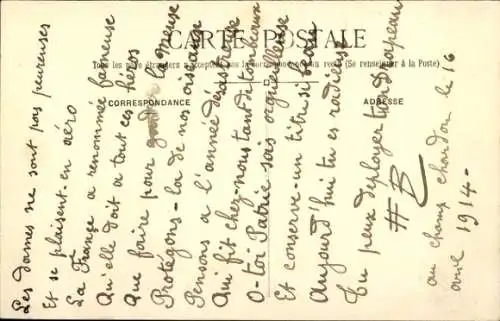 CARTE POSTALE
Tous les pays étrangers n'acceptent pas la correspondance au recto (Se renseigner à la Poste)
CORRESPONDANCE
ADRESSE
Les dames ne sont pas peureuses
Et se plaisent en aéro
La France a renommée fameuse
Qu'elle doit à tout ces héros
Que faire pour la meuse
Protégons-la de nos oiseaux
Pensons a l'année désastreuse
Qui fit chez-nous tant de tombeaux
O-toi Patrie sois orgueilleuse
Et conserve-un titre si beau
Aujourd'hui tu es radieuse
Tu peux déployer ton Drapeau
HB
au champ chardon le 16
avril 1914-